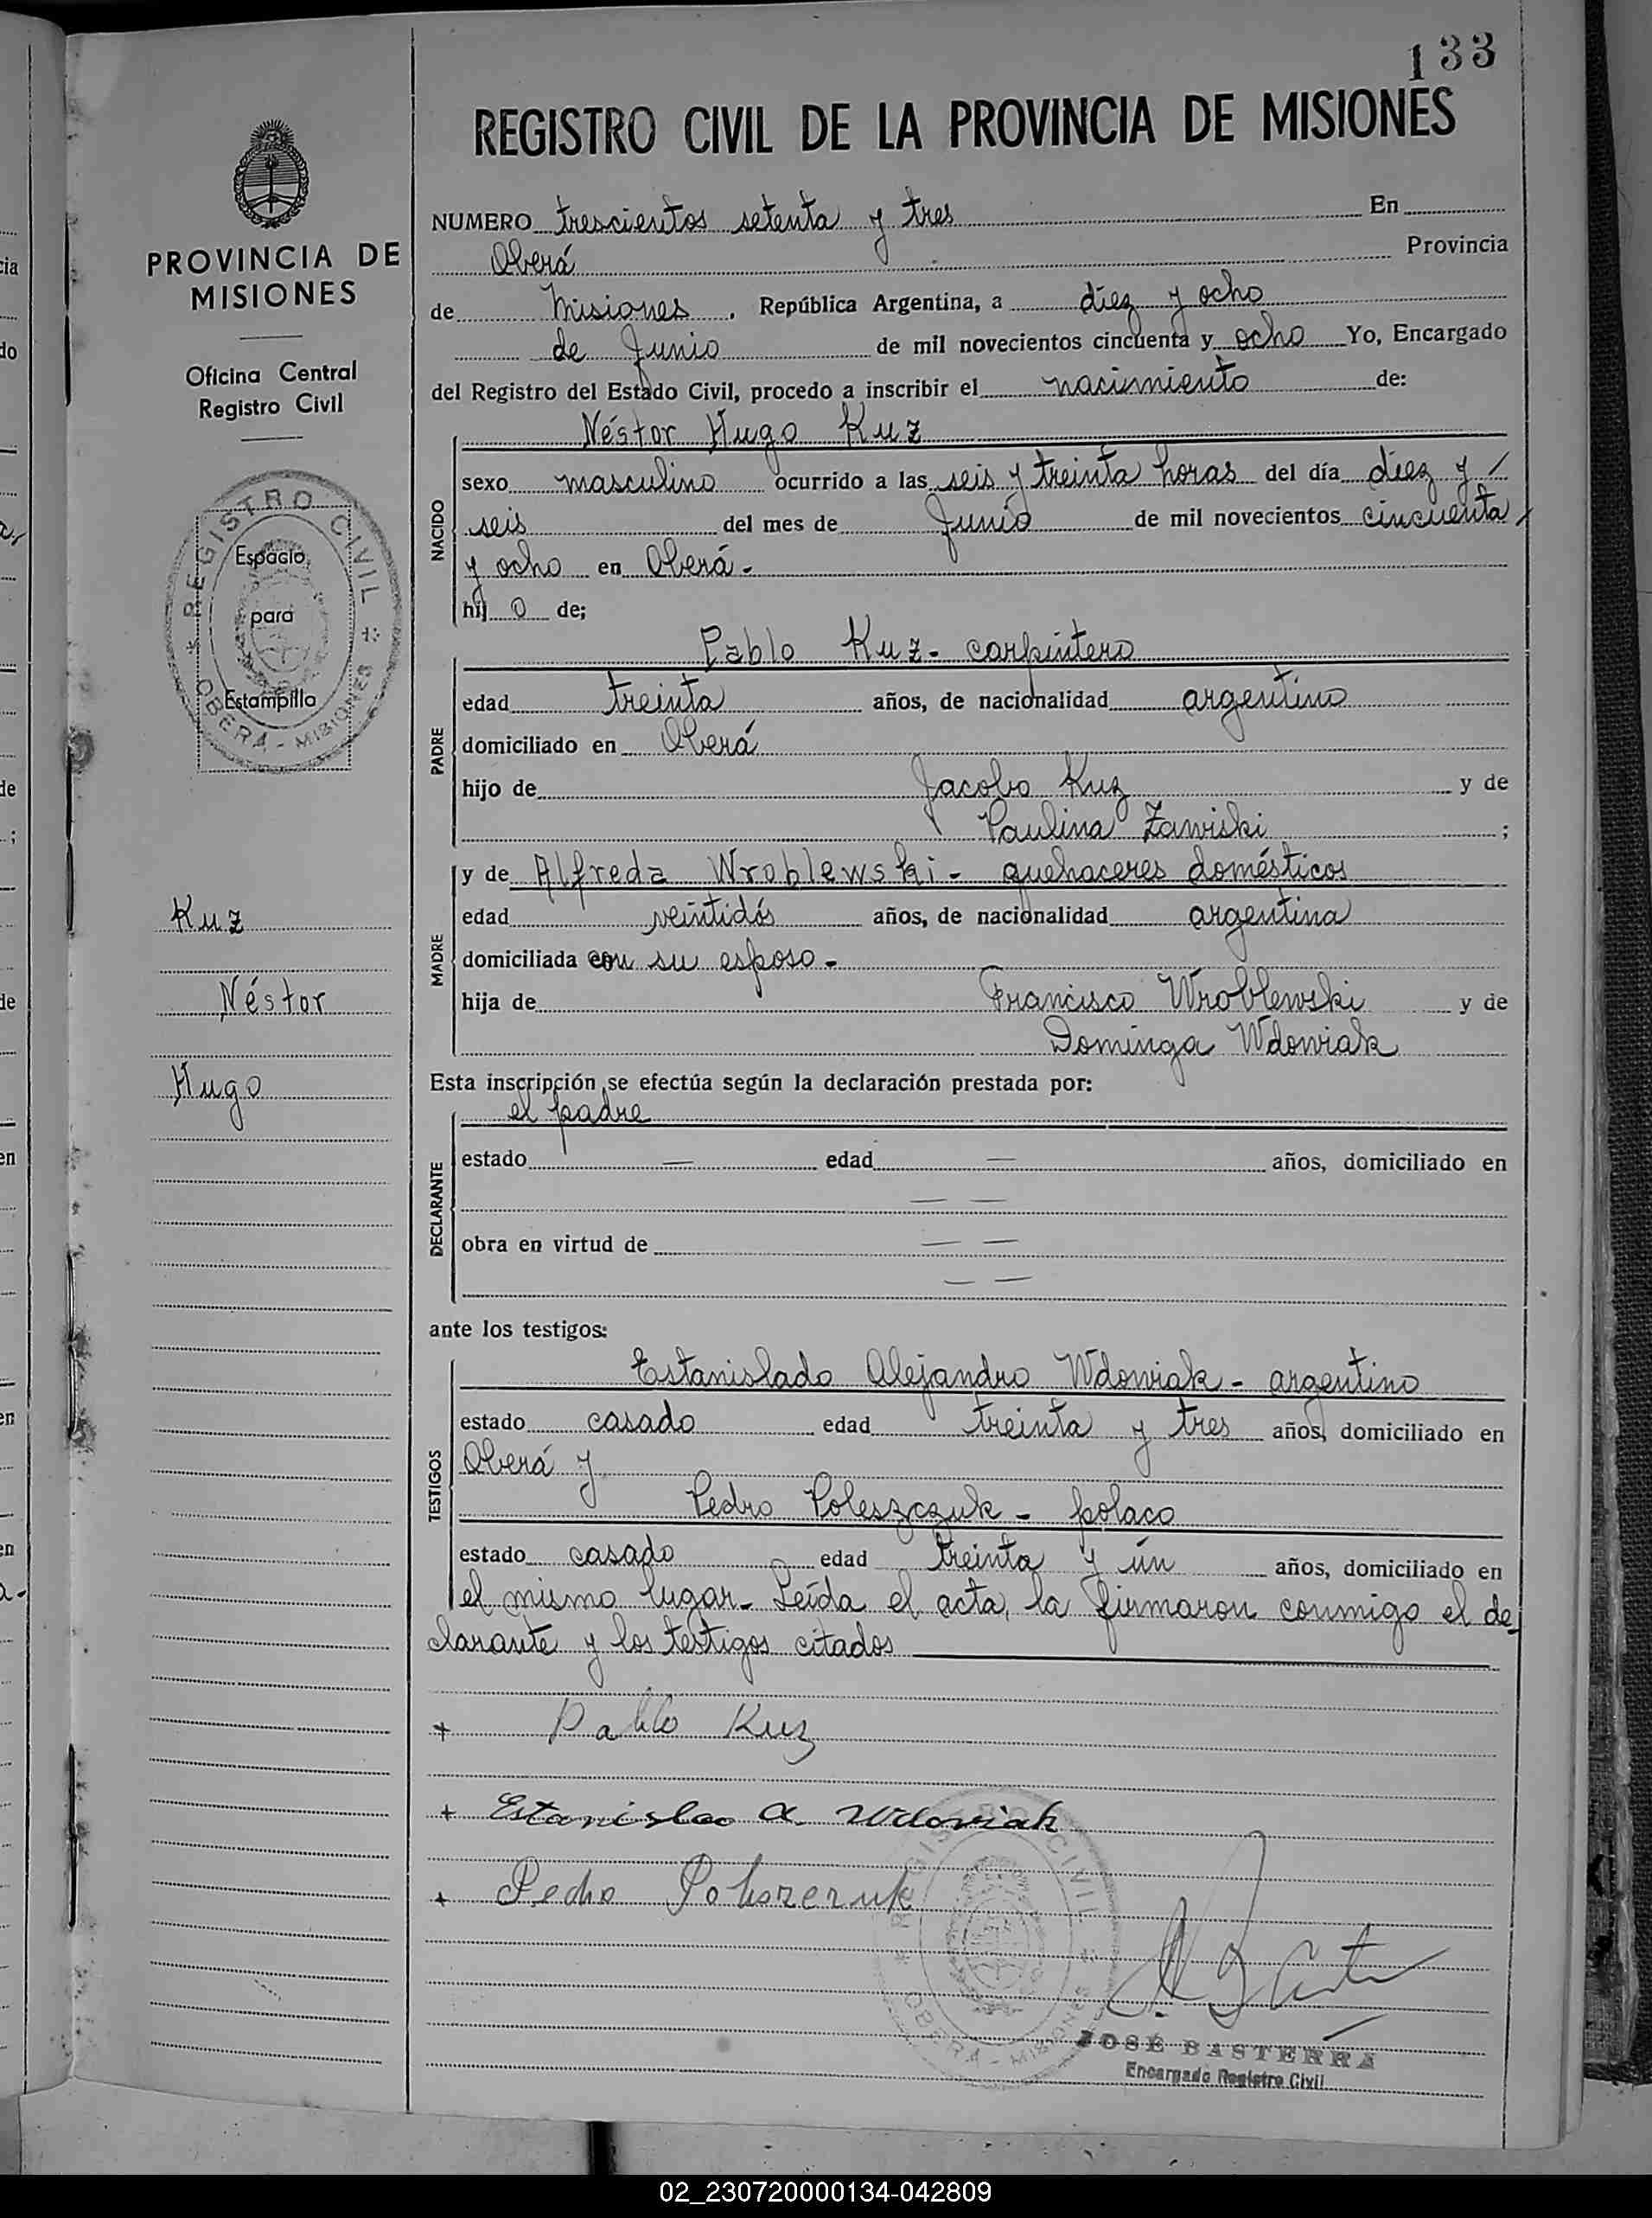 133
REGISTRO CIVIL DE LA PROVINCIA DE MISIONES
PROVINCIA DE
MISIONES
Oficina Central
Registro Civil
REGISTRO CIVIL
OBERÁ - MISIONES
Espacio
para
Estampilla
Kuz
Néstor
Hugo
NUMERO trescientos setenta y tres En
Oberá Provincia
de Misiones, República Argentina, a diez y ocho
de Junio de mil novecientos cincuenta y ocho Yo, Encargado
del Registro del Estado Civil, procedo a inscribir el nacimiento de:
Néstor Hugo Kuz
NACIDO
sexo masculino ocurrido a las seis y treinta horas del día diez y
seis del mes de Junio de mil novecientos cincuenta
y ocho en Oberá.-
hij o de;
Pablo Kuz - carpintero
PADRE
edad treinta años, de nacionalidad argentino
domiciliado en Oberá
hijo de Jacobo Kuz y de
Paulina Zawiski ;
y de Alfreda Wroblewski - quehaceres domésticos
MADRE
edad veintidós años, de nacionalidad argentina
domiciliada con su esposo -
hija de Francisco Wroblewski y de
Dominga Wdowiak
Esta inscripción se efectúa según la declaración prestada por:
el padre
DECLARANTE
estado — edad — años, domiciliado en
— —
obra en virtud de — —
— —
ante los testigos:
Estanislado Alejandro Wdowiak - argentino
TESTIGOS
estado casado edad treinta y tres años, domiciliado en
Oberá y
Pedro Poleszczuk - polaco
estado casado edad treinta y un años, domiciliado en
el mismo lugar - Leída el acta, la firmaron conmigo el de-
clarante y los testigos citados
+ Pablo Kuz
+ Estanislao A. Wdoviak
+ Pedro
REGISTRO CIVIL
OBERÁ - MISIONES
JOSÉ BASTERRA
Encargado Registro Civil
02_230720000134-042809